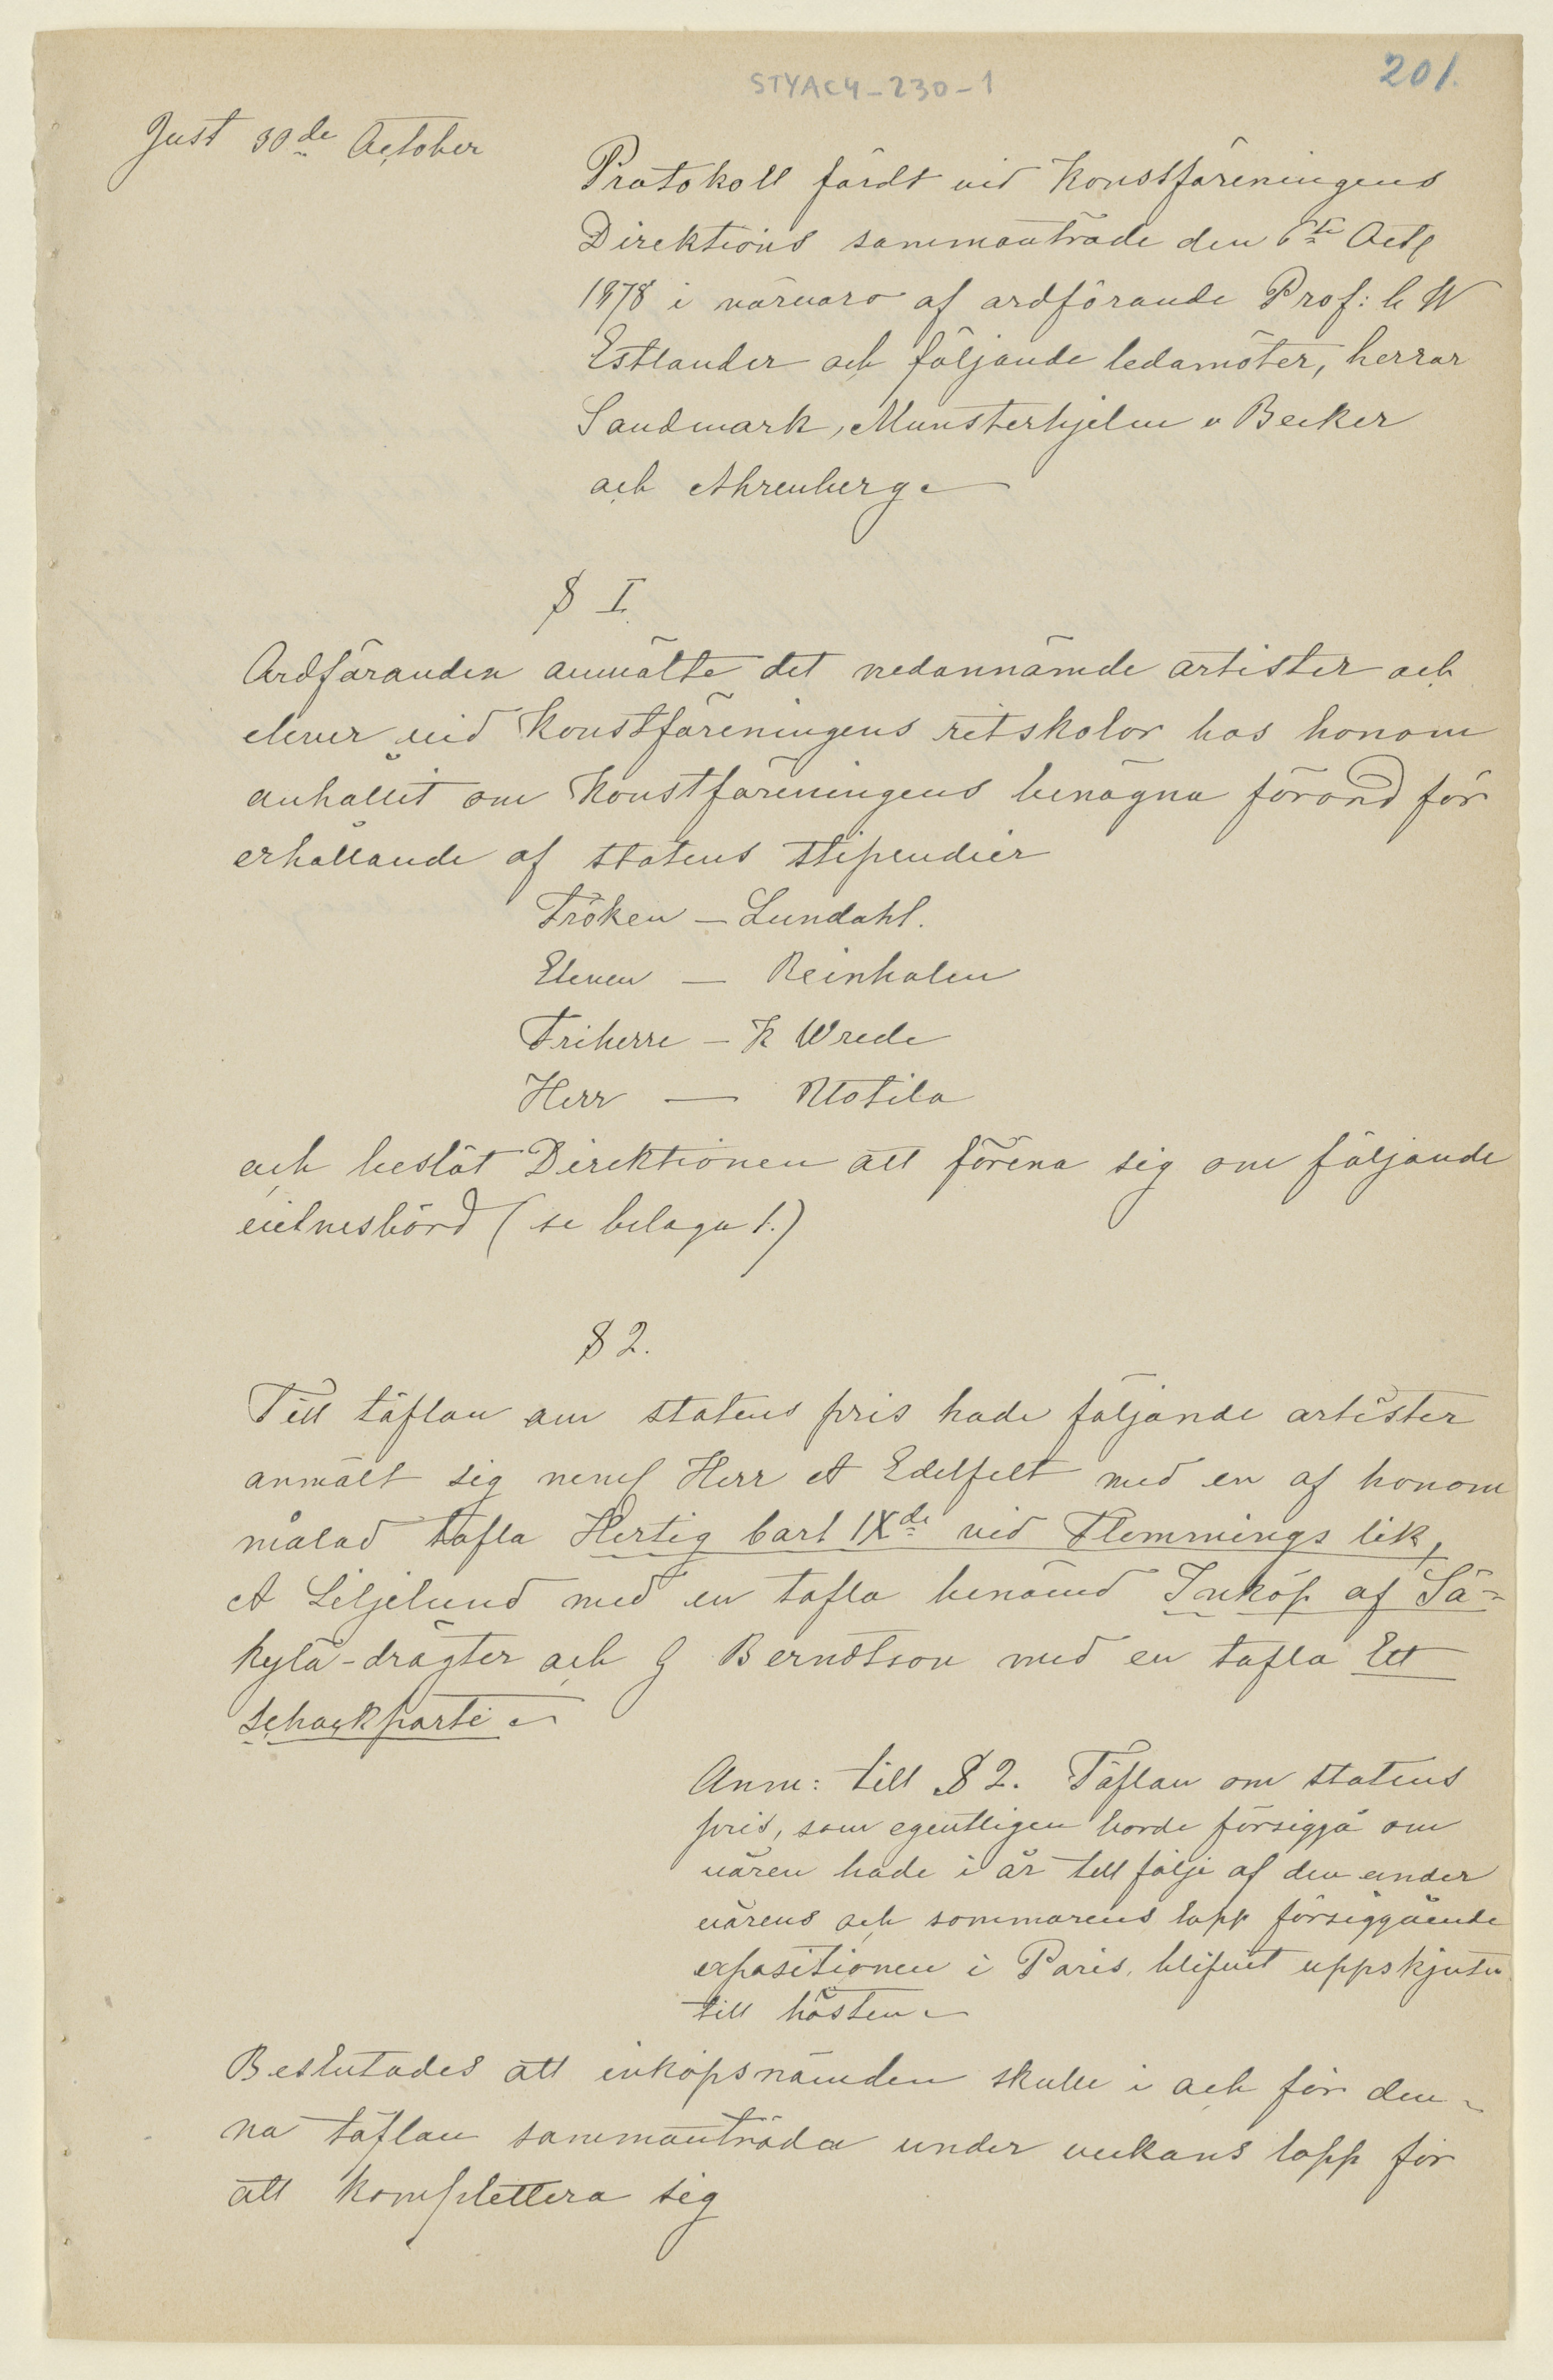 STYAC4-230-1
201.
Just 30de October
Protokoll fördt vid Konstföreningens
Direktions sammanträde den 6te Octb
1878 i närvaro af ordförande Prof: C W
Estlander och följande ledamöter, herrar
Sandmark, Munsterhjelm v Becker
och Ahrenberg.
§ I.
Ordföranden anmälte det nedannämde artister och
elever vid Konstföreningens ritskolor hos honom
anhållit om Konstföreningens benägna förord för
erhållande af statens stipendier
Fröken – Lundahl.
Eleven – Reinholm
Friherre – K Wrede
Herr – Utotila
och beslöt Direktionen att förena sig om följande
vitnesbörd (se bilaga 1.)
§ 2.
Till täflan om statens pris hade följande artister
anmält sig neml Herr A Edelfelt med en af honom
målad tafla Hertig Carl IXde vid Flemmings lik,
A Liljelund med en tafla benämd Inköp af Sä-
kylä-drägter och G Berndtson med en tafla Ett
schackparti.
Anm: till § 2. Täflan om statens
pris, som egentligen borde försiggå om
våren hade i år till följe af den under
vårens och sommarens lopp försiggående
expositionen i Paris, blifvit uppskjuten
till hösten.
Beslutades att inköpsnämden skulle i och för den-
na täflan sammanträda under veckans lopp för
att komplettera sig